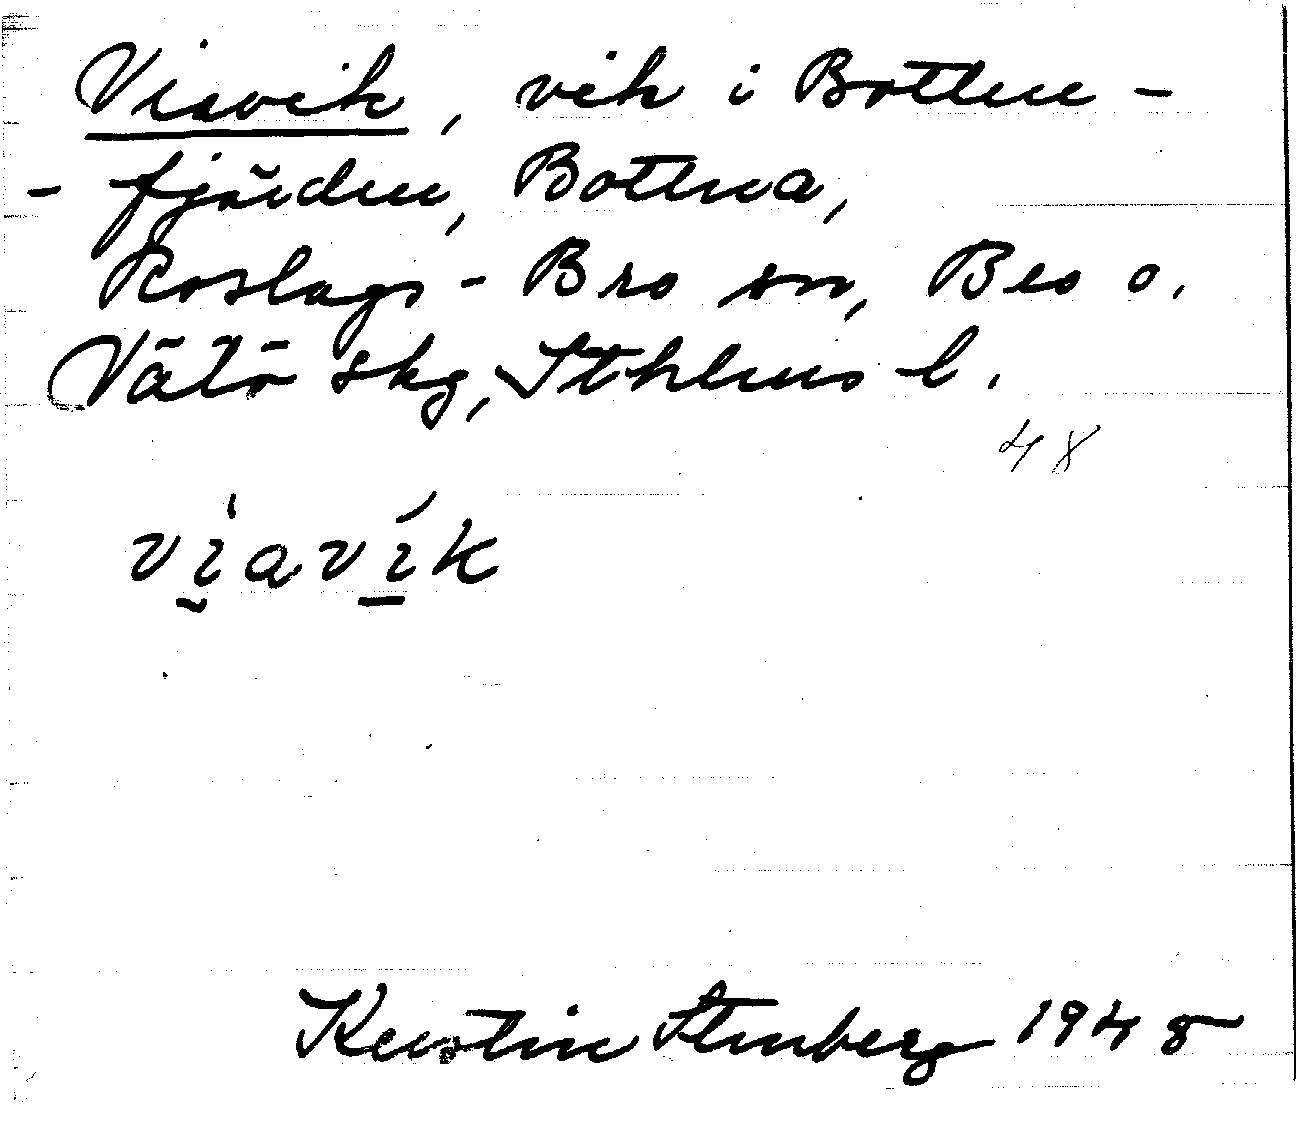 Viavik, vik i Botten-
- fjärden, Bottna,
Roslags-Bro sn, Bro o.
Vätö skg, Sthlms l.
48
viavik
Kerstin Stenberg 1948